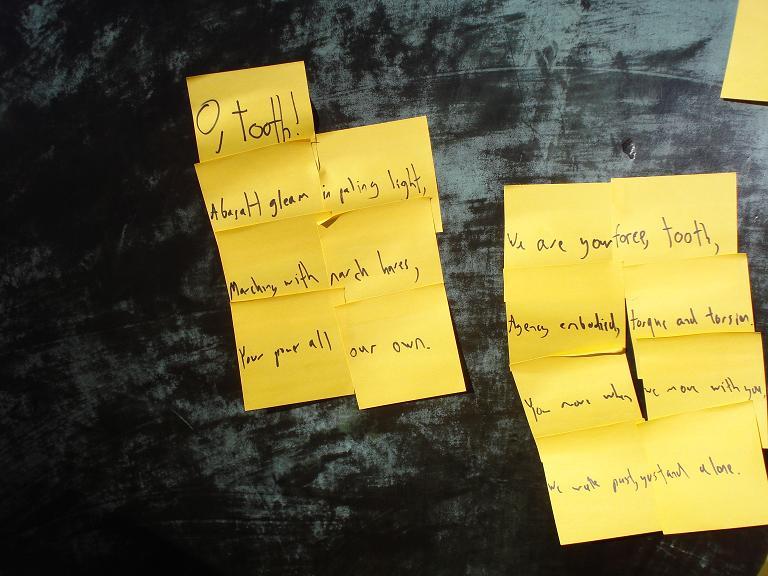 O, tooth!
Abasalt gleam in paling light,
Marching with march hares,
Your power all our own.
We are your force, tooth,
Agency embodied, torque and torsion.
You move when we move with you,
we walk past, you stand alone.